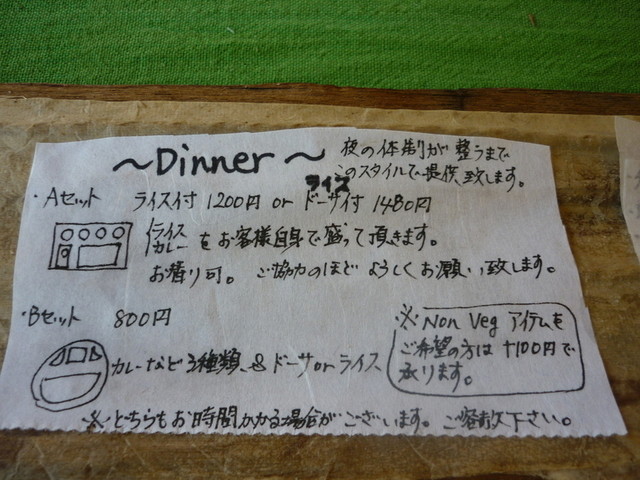 ～Dinner～
夜の体制が整うまで
このスタイルで提供致します。
・Aセット ライス付 1200円 or ドーサ付 1480円
ライス
ライス
カレー をお客様自身で盛って頂きます。
お替り可。 ご協力のほど よろしくお願い致します。
・Bセット 800円
カレーなど3種類、& ドーサ or ライス
※ Non Veg アイテムを
ご希望の方は +100円で
承ります。
※どちらもお時間かかる場合がございます。ご容赦下さい。